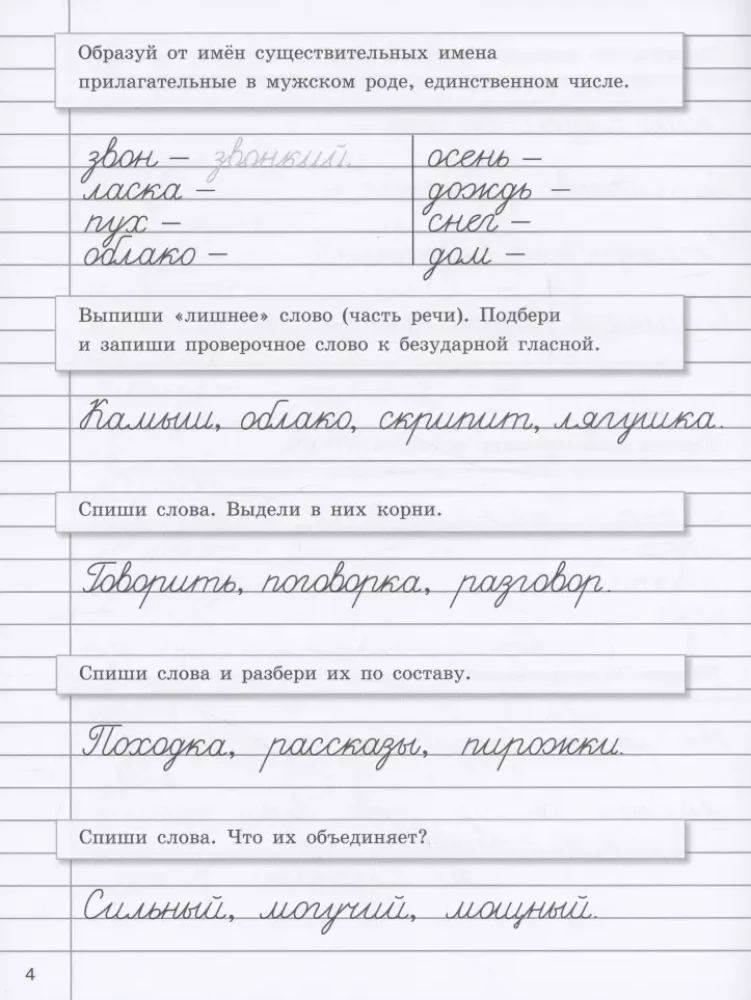 Образуй от имён существительных имена
прилагательные в мужском роде, единственном числе.
звон – звонкий.
ласка –
пух –
облако –
осень –
дождь –
снег –
дом –
Выпиши «лишнее» слово (часть речи). Подбери
и запиши проверочное слово к безударной гласной.
Камыш, облако, скрипит, лягушка.
Спиши слова. Выдели в них корни.
Говорить, поговорка, разговор.
Спиши слова и разбери их по составу.
Походка, рассказы, пирожки.
Спиши слова. Что их объединяет?
Сильный, могучий, мощный.
4